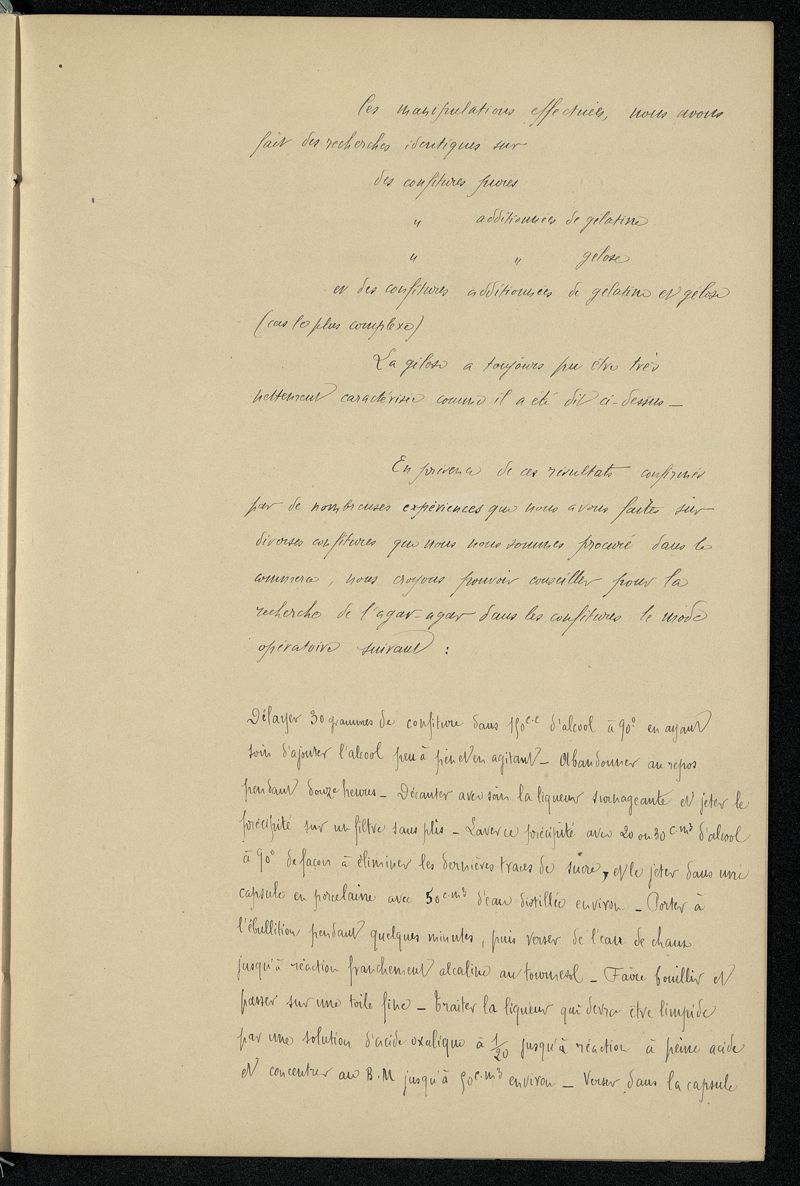 Ces manipulations effectuées, nous avons
fait des recherches identiques sur
des confitures pures
" additionnées de gélatine
" " gélose
et des confitures additionnées de gélatine et gélose
(cas le plus complexe)
La gélose a toujours pu être très
nettement caractérisée comme il a été dit ci-dessus_
En présence de ces résultats confirmés
par de nombreuses expériences que nous avons faites sur
diverses confitures que nous nous sommes procuré dans le
commerce, nous croyons pouvoir conseiller pour la
recherche de l'agar-agar dans les confitures le mode
opératoire suivant :
Délayer 30 grammes de confiture dans 150 c.c d'alcool à 90° en ayant
soin d'ajouter l'alcool peu à peu et en agitant_ Abandonner au repos
pendant douze heures_ Décanter avec soin la liqueur surnageante et jeter le
précipité sur un filtre sans plis_ Laver ce précipité avec 20 ou 30 c.m3 d'alcool
à 90° de façon à éliminer les dernières traces de sucre, et le jeter dans une
capsule en porcelaine avec 50 c.m3 d'eau distillée environ_ Porter à
l'ébullition pendant quelques minutes, puis verser de l'eau de chaux
jusqu'à réaction franchement alcaline au tournesol_ Faire bouillir et
passer sur une toile fine_ Traiter la liqueur qui devra être limpide
par une solution d'acide oxalique à 1/20 jusqu'à réaction à peine acide
et concentrer au B.M jusqu'à 50 c.m3 environ_ Verser dans la capsule